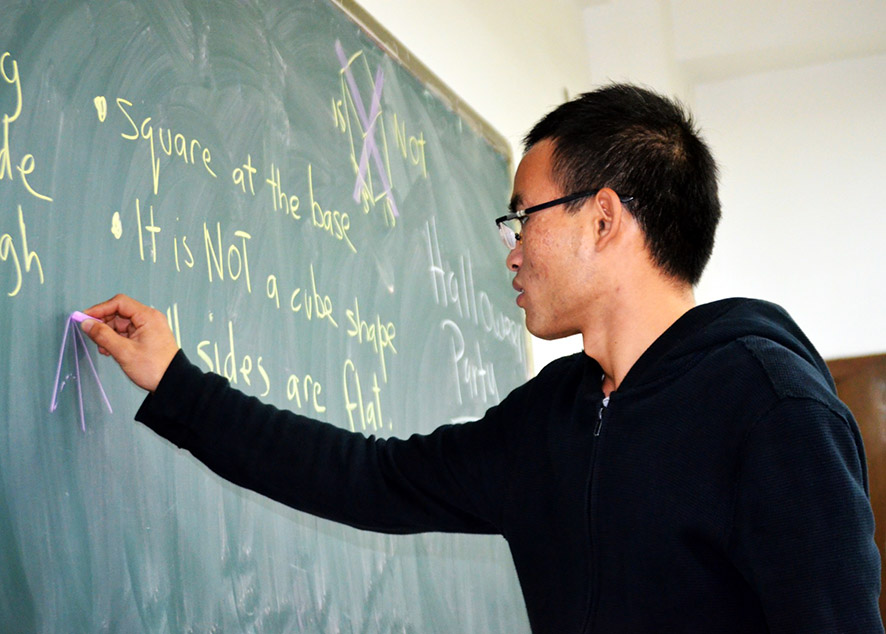 Square at the base
It is NOT a cube shape
sides are flat.
is NOT
Halloween
Party